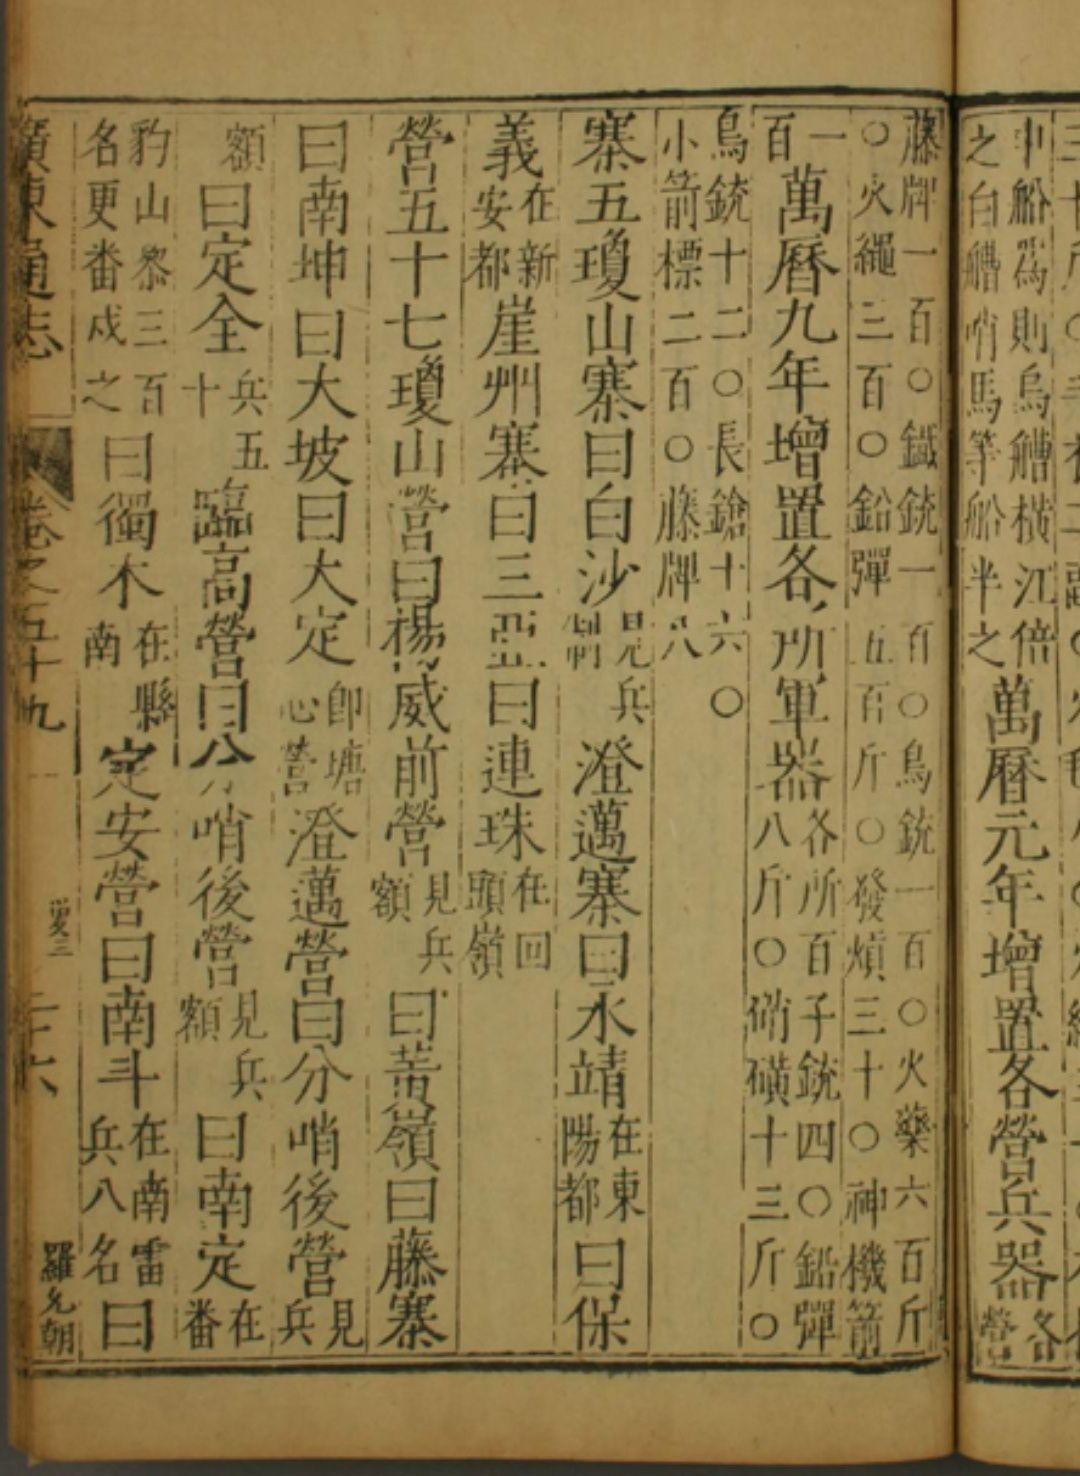 中船為則烏艚橫江倍
之白艚哨馬等船半之
萬曆元年增置各營兵器
各
營
藤牌一百○鐵銃一百○鳥銃一百○火藥六百斤
○火繩三百○鉛彈五百斤○發熕三十○神機箭
一
百
萬曆九年增置各所軍器
各所百子銃四○鉛彈
八斤○硝磺十三斤○
鳥銃十二○長鎗十六○
小箭標二百○藤牌八
寨五瓊山寨曰白沙
見兵
額
澄邁寨曰永靖
在東
陽都
曰保
義
在新
安都
崖州寨曰三亞曰連珠
在回
頭嶺
營五十七瓊山營曰揚威前營
見兵
額
曰黃嶺曰藤寨
曰南坤曰大坡曰大定
即塘
心營
澄邁營曰分哨後營
見
兵
額
曰定全
兵五
十
臨高營曰分哨後營
見兵
額
曰南定
在
番
豹山黎三百
名更番戍之
曰獨木
在縣
南
定安營曰南斗
在南雷
兵八名
曰
廣東通志
卷之五十九
羅允朝